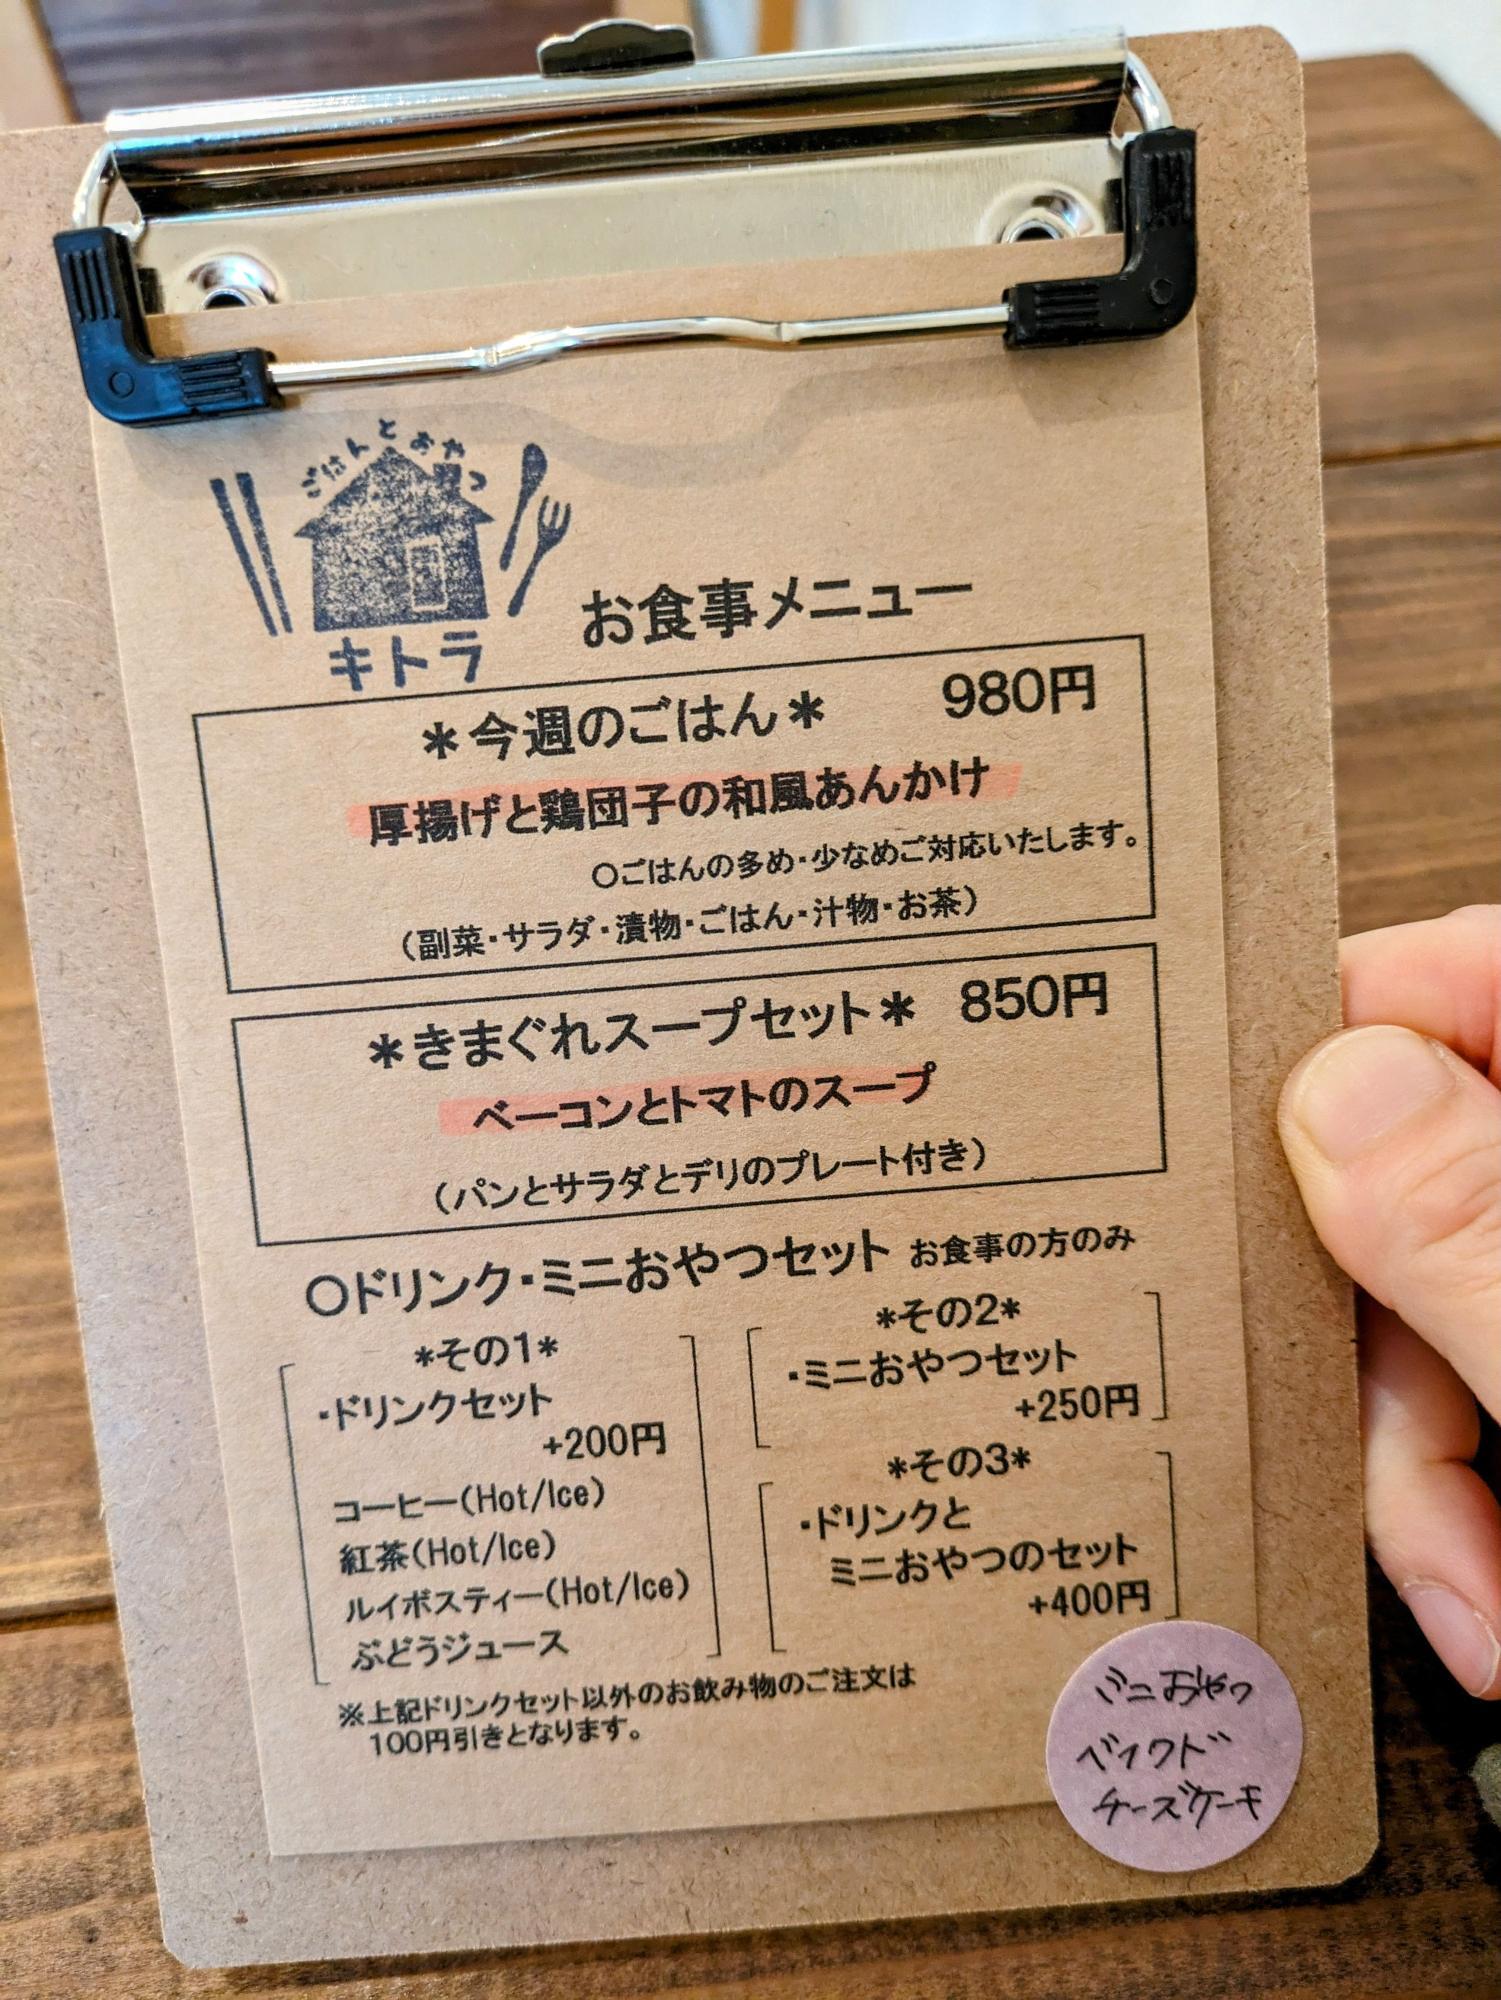 ごはんとおやつ
キトラ
お食事メニュー
＊今週のごはん＊ 980円
厚揚げと鶏団子の和風あんかけ
○ごはんの多め・少なめご対応いたします。
（副菜・サラダ・漬物・ごはん・汁物・お茶）
＊きまぐれスープセット＊ 850円
ベーコンとトマトのスープ
（パンとサラダとデリのプレート付き）
○ドリンク・ミニおやつセット お食事の方のみ
*その1*
・ドリンクセット
+200円
コーヒー(Hot/Ice)
紅茶(Hot/Ice)
ルイボスティー(Hot/Ice)
ぶどうジュース
*その2*
・ミニおやつセット
+250円
*その3*
・ドリンクと
ミニおやつのセット
+400円
※上記ドリンクセット以外のお飲み物のご注文は
100円引きとなります。
ミニおやつ
ベイクド
チーズケーキ